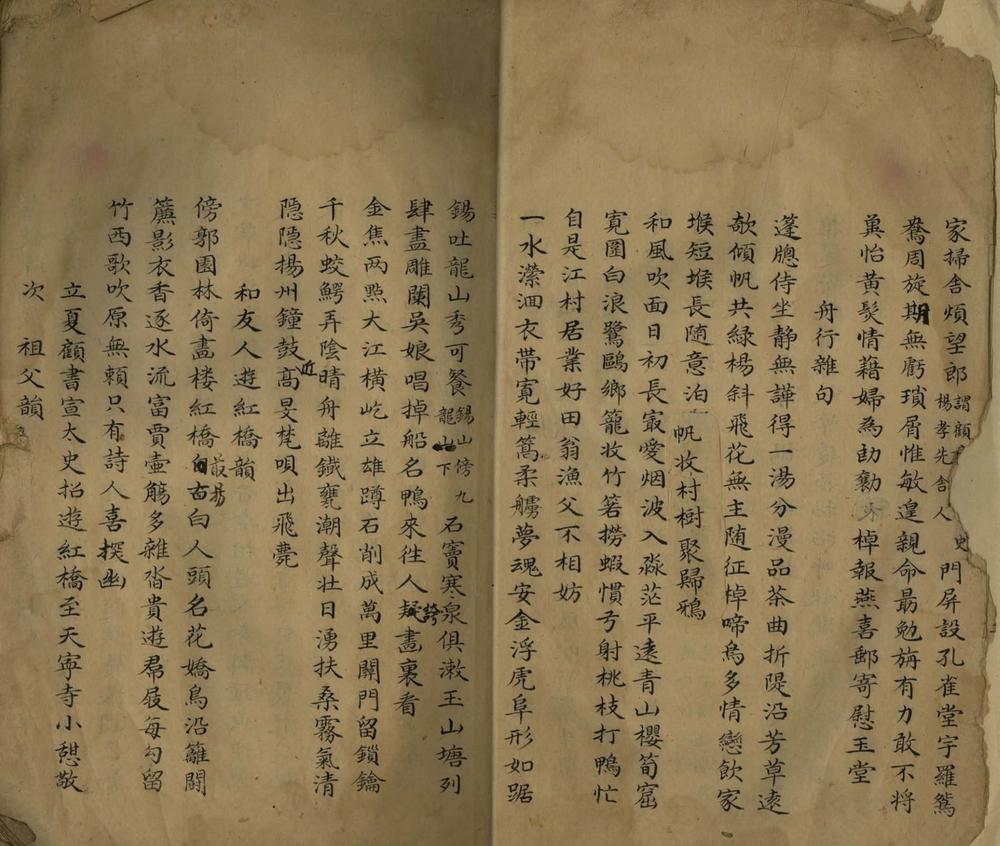 家掃舍煩望郎謂顧楊孝先舍人史門屏設孔雀堂宇羅鴛
鴦周旋期無虧瑣屑惟敏遑親命最勉旃有力敢不將
萬怡黃髮情藉婦為劻勷棹報燕喜郵寄慰玉堂
舟行雜句
蓬牕侍坐静無譁得一湯分漫品茶曲折隄沿芳草遠
欹傾帆共緑楊斜飛花無主随征棹啼鳥多情戀飲家
堠短堠長随意泊一帆收村樹聚歸鴉
和風吹面日初長寂愛烟波入淼茫平遠青山櫻筍窟
寛圍白浪鷺鷗鄉籠收竹箬撈蝦慣弓射桃枝打鴨忙
自是江村居業好田翁漁父不相妨
一水瀠洄衣帶寛輕篙柔艣夢魂安金浮虎阜形如踞
錫吐龍山秀可餐錫山傍九龍山下石竇寒泉俱漱玉山塘列
肆盡雕闌吳娘唱掉船名鴨來徃人疑誇畫裏看
金焦两㸃大江橫屹立雄蹲石削成萬里關門留鎖鑰
千秋蛟鰐弄陰晴舟離鐵甕潮聲壯日湧扶桑霧氣清
隠隠揚州鐘鼓髙近旻梵唄出飛甍
和友人遊紅橋韻
傍郭園林倚畵楼紅橋自古最易白人頭名花嬌鳥沿籬鬪
簾影衣香逐水流富賈壷觴多雜沓貴遊帬屐每勾留
竹西歌吹原無頼只有詩人喜探幽
立夏顧書宣太史招遊紅橋至天寕寺小憇敬
次祖父韻